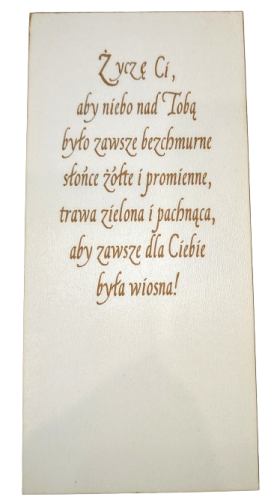 Życzę Ci,
aby niebo nad Tobą
było zawsze bezchmurne
słońce żółte i promienne,
trawa zielona i pachnąca,
aby zawsze dla Ciebie
była wiosna!